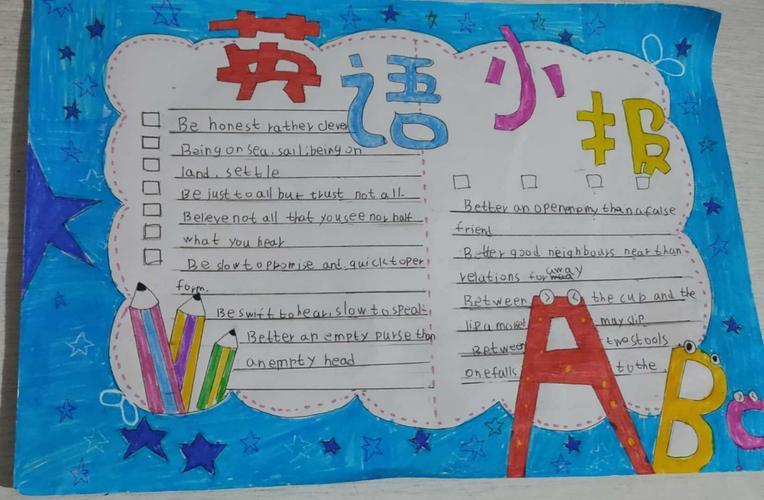 英语小报
Be honest rather cleve
Being on sea, sail; being on
land, settle
Be just to all but trust not all.
Beleve not all that you see nor half
what you hear
Be slow to promise and quick to per
form.
Be swift to hear, slow to speak
Better an empty purse than
an empty head
Better an open enemy than a false
friend
Better good neighbours near than
relations far away
Between the cup and the
lip a morsel may slip
Between two stools
one falls to the
A B C